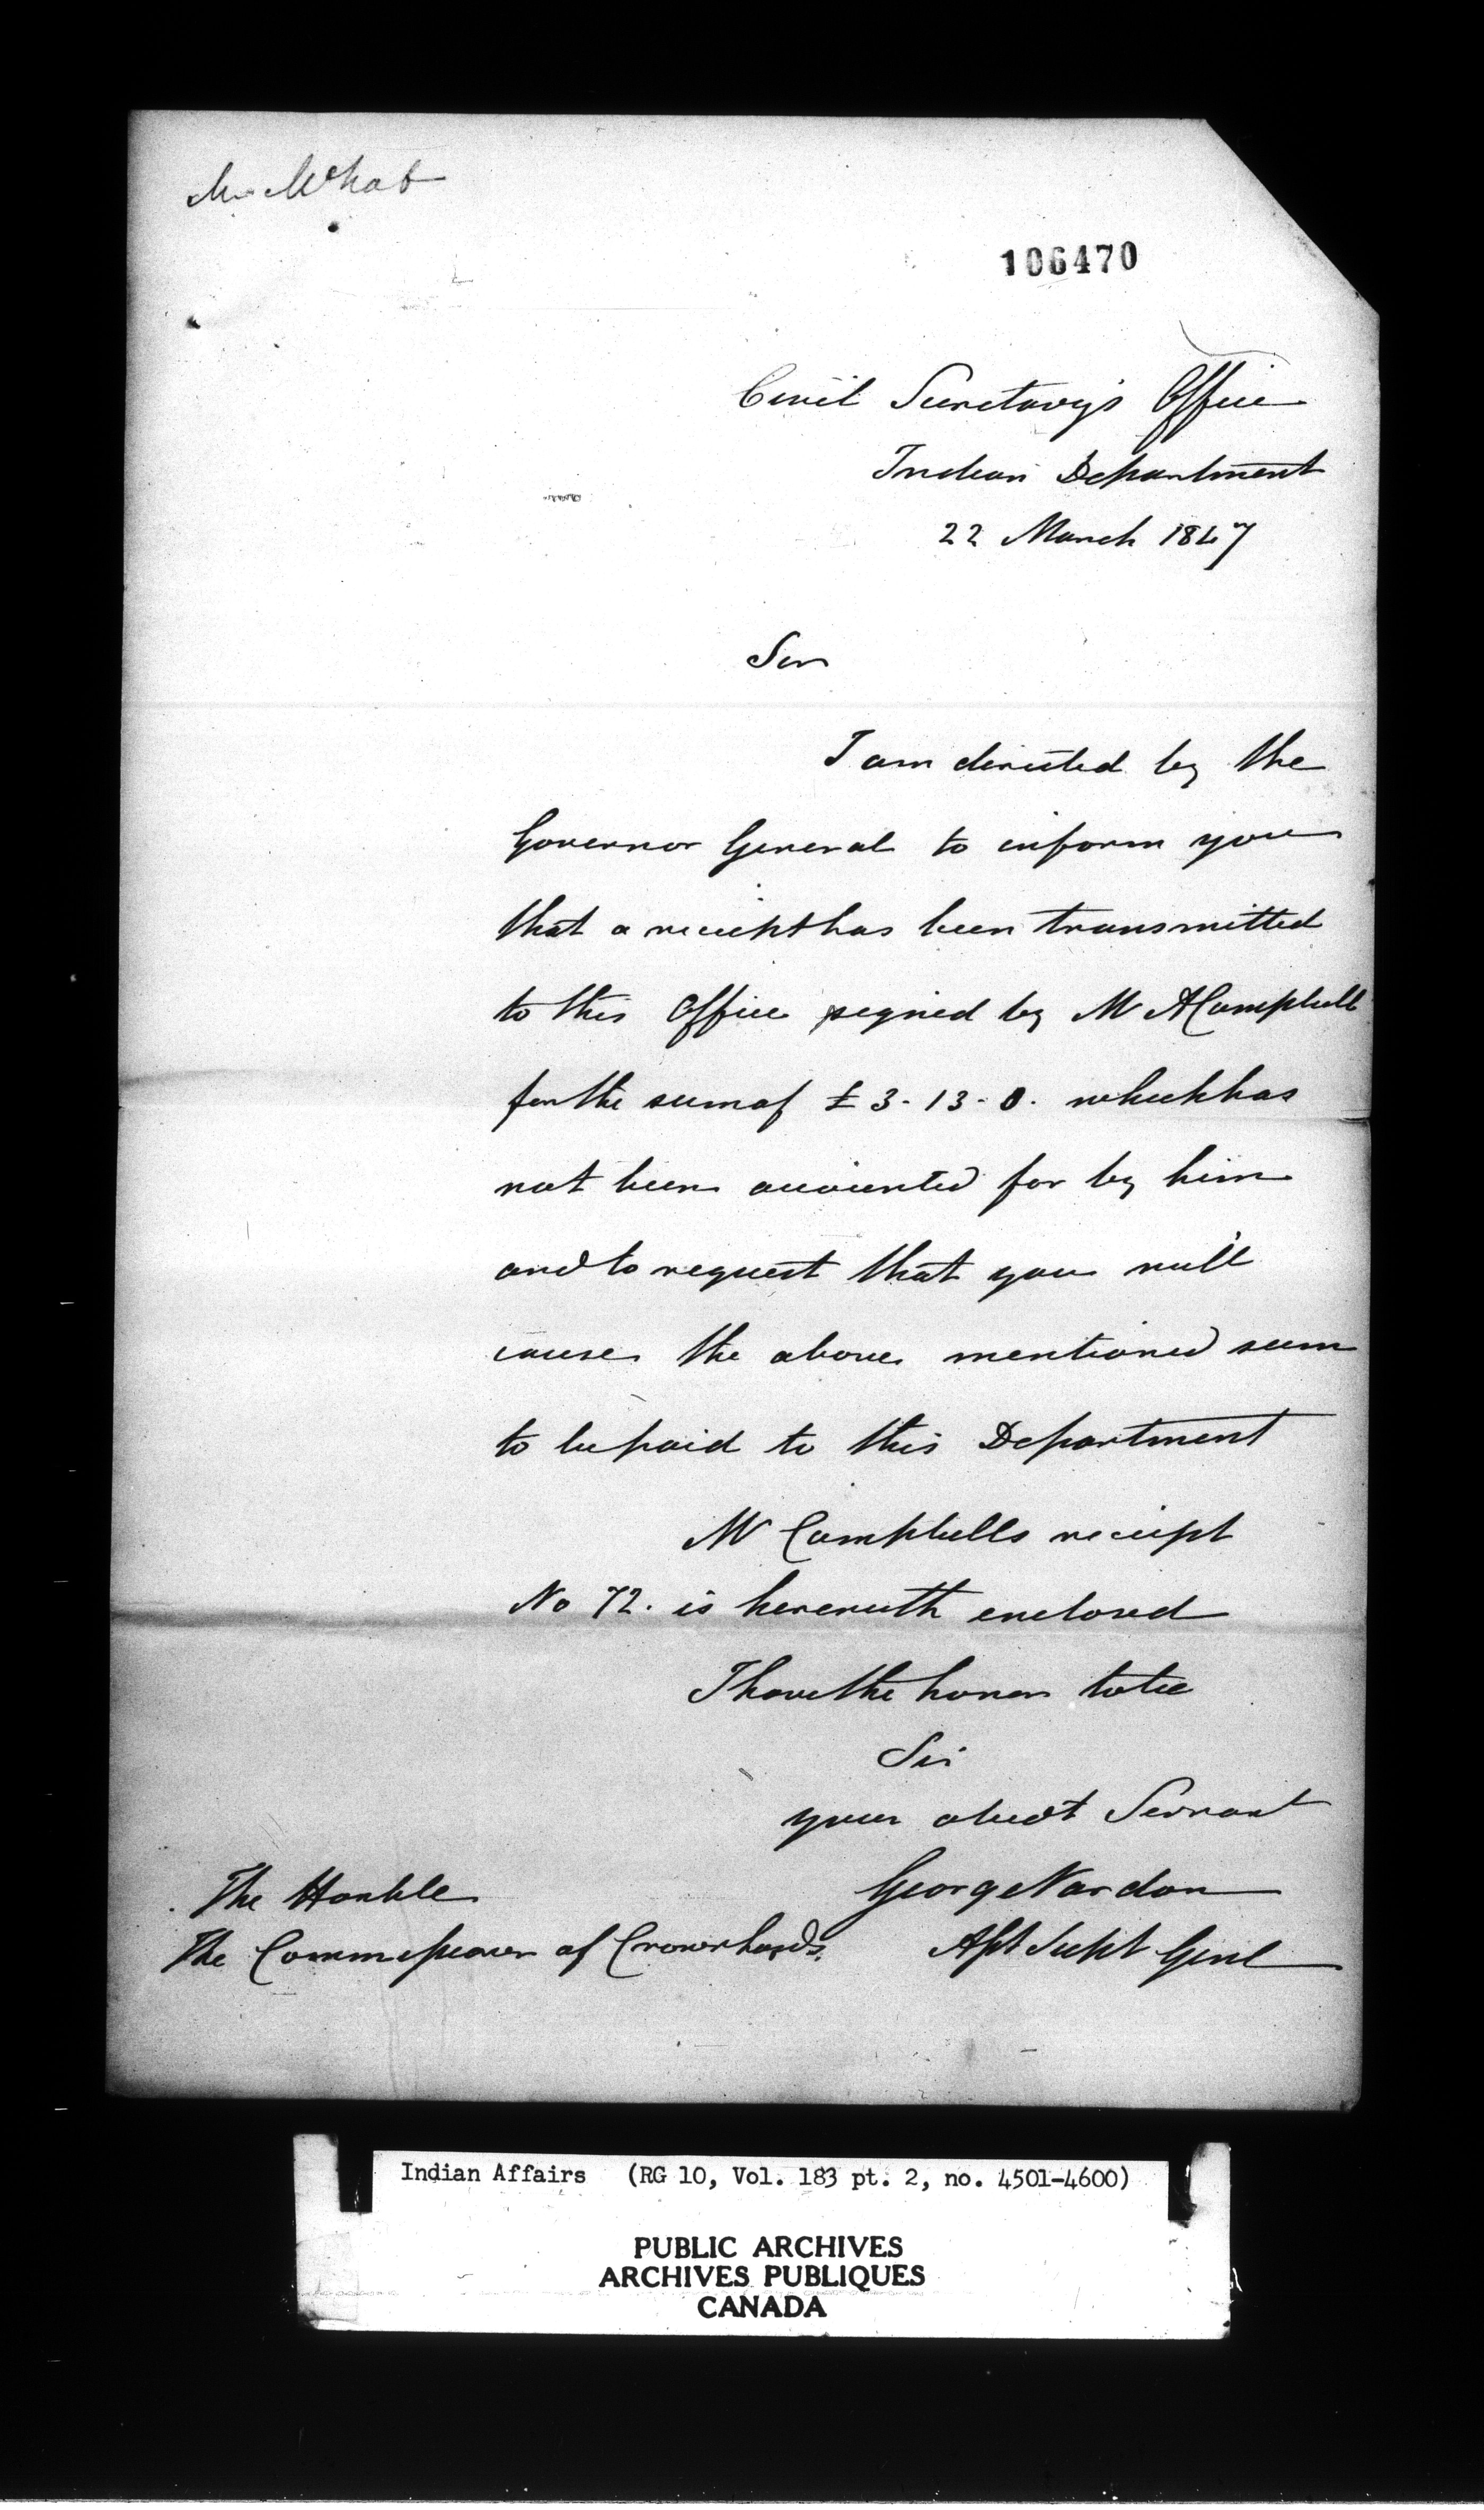 Mr McNab
106470
Civil Secretary's Office
Indian Department
22 March 1847
Sir
I am directed by the
Governor General to inform you
that a receipt has been transmitted
to this Office signed by Mr A Campbell
for the sum of £3-13-0. which has
not been accounted for by him
and to request that you will
cause the above mentioned sum
to be paid to this Department
Mr Campbells receipt
No 72. is herewith enclosed
I have the honor to be
Sir
your obedt Servant
George Vardon
Asst Supt Genl
The Honble
The Commissioner of Crown lands.
Indian Affairs (RG 10, Vol. 183 pt. 2, no. 4501-4600)
PUBLIC ARCHIVES
ARCHIVES PUBLIQUES
CANADA